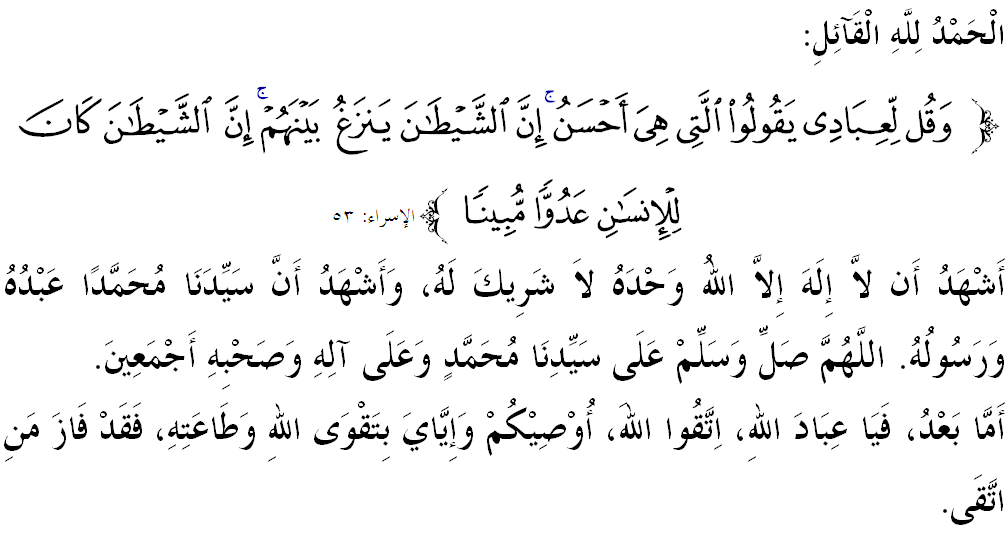 الْحَمْدُ لِلَّهِ الْقَآئِلِ:
﴿ وَقُل لِّعِبَادِى يَقُولُوا۟ ٱلَّتِى هِىَ أَحْسَنُ ۚ إِنَّ ٱلشَّيْطَـٰنَ يَنزَغُ بَيْنَهُمْ ۚ إِنَّ ٱلشَّيْطَـٰنَ كَانَ
لِلْإِنسَـٰنِ عَدُوًّا مُّبِينًا ﴾ الإسراء: ٥٣
أَشْهَدُ أَن لاَّ إِلَهَ إِلاَّ اللهُ وَحْدَهُ لاَ شَرِيكَ لَهُ، وَأَشْهَدُ أَنَّ سَيِّدَنَا مُحَمَّدًا عَبْدُهُ
وَرَسُولُهُ. اللَّهُمَّ صَلِّ وَسَلِّمْ عَلَى سَيِّدِنَا مُحَمَّدٍ وَعَلَى آلِهِ وَصَحْبِهِ أَجْمَعِينَ.
أَمَّا بَعْدُ، فَيَا عِبَادَ اللهِ، اِتَّقُوا اللهَ، أُوْصِيْكُمْ وَإِيَّايَ بِتَقْوَى اللهِ وَطَاعَتِهِ، فَقَدْ فَازَ مَنِ
اتَّقَى.